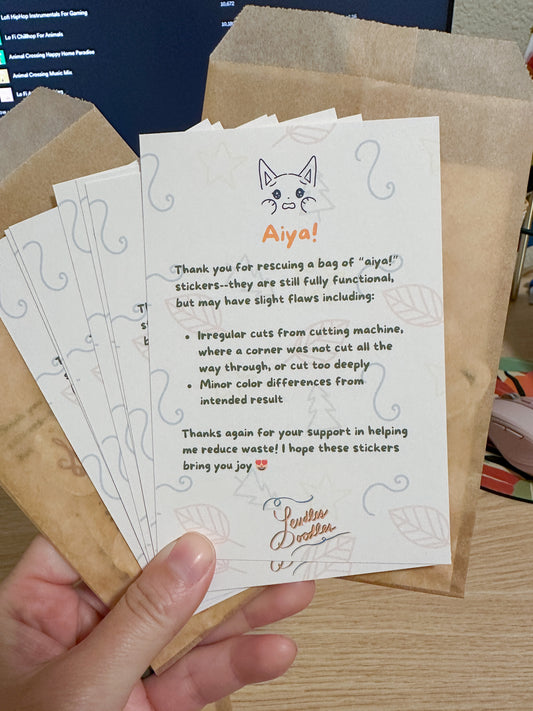 Lofi HipHop Instrumentals For Gaming
10,672
Lo Fi Chillhop For Animals
Animal Crossing Happy Home Paradise
Animal Crossing Music Mix
Lo Fi
Aiya!
Thank you for rescuing a bag of “aiya!”
stickers--they are still fully functional,
but may have slight flaws including:
• Irregular cuts from cutting machine,
where a corner was not cut all the
way through, or cut too deeply
• Minor color differences from
intended result
Thanks again for your support in helping
me reduce waste! I hope these stickers
bring you joy 😍
Leudles
Doodles